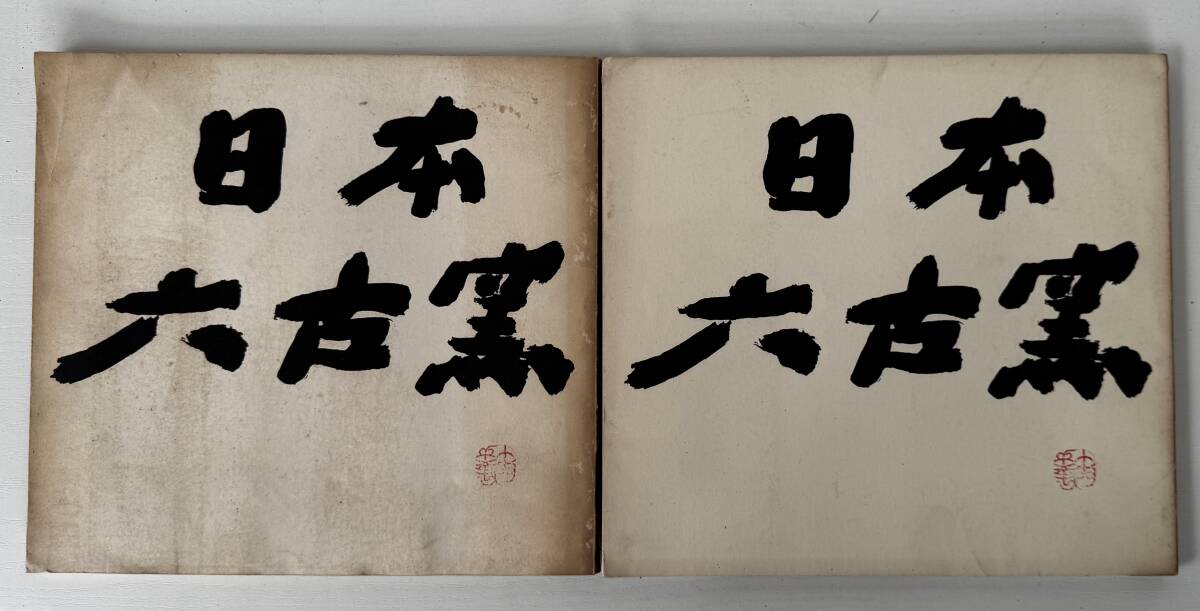 日本
六古窯
日本
六古窯